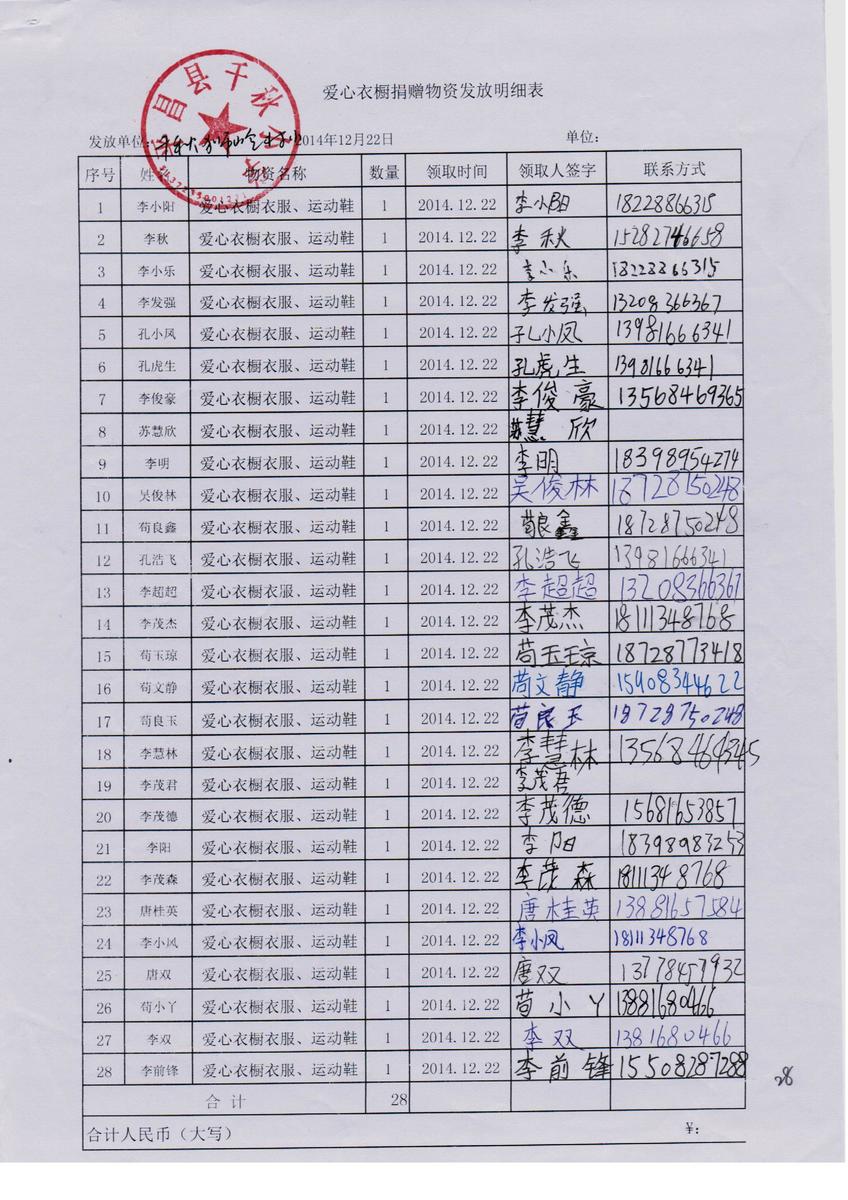 爱心衣橱捐赠物资发放明细表
发放单位: 2014年12月22日 单位:
昌县千秋
序号 姓 物资名称 数量 领取时间 领取人签字 联系方式
1 李小阳 爱心衣橱衣服、运动鞋 1 2014.12.22 李小阳 18228866315
2 李秋 爱心衣橱衣服、运动鞋 1 2014.12.22 李秋 15282746658
3 李小乐 爱心衣橱衣服、运动鞋 1 2014.12.22 李小乐 18228866315
4 李发强 爱心衣橱衣服、运动鞋 1 2014.12.22 李发强 13208366367
5 孔小凤 爱心衣橱衣服、运动鞋 1 2014.12.22 孔小凤 13981666341
6 孔虎生 爱心衣橱衣服、运动鞋 1 2014.12.22 孔虎生 13981666341
7 李俊豪 爱心衣橱衣服、运动鞋 1 2014.12.22 李俊豪 13568469365
8 苏慧欣 爱心衣橱衣服、运动鞋 1 2014.12.22 苏慧欣
9 李明 爱心衣橱衣服、运动鞋 1 2014.12.22 李明 18398954274
10 吴俊林 爱心衣橱衣服、运动鞋 1 2014.12.22 吴俊林 18728750248
11 苟良鑫 爱心衣橱衣服、运动鞋 1 2014.12.22 苟良鑫 18728750248
12 孔浩飞 爱心衣橱衣服、运动鞋 1 2014.12.22 孔浩飞 13981666341
13 李超超 爱心衣橱衣服、运动鞋 1 2014.12.22 李超超 13208366367
14 李茂杰 爱心衣橱衣服、运动鞋 1 2014.12.22 李茂杰 18111348768
15 苟玉琼 爱心衣橱衣服、运动鞋 1 2014.12.22 苟玉琼 18728773418
16 苟文静 爱心衣橱衣服、运动鞋 1 2014.12.22 苟文静 15908344622
17 苟良玉 爱心衣橱衣服、运动鞋 1 2014.12.22 苟良玉 18728750248
18 李慧林 爱心衣橱衣服、运动鞋 1 2014.12.22 李慧林
19 李茂君 爱心衣橱衣服、运动鞋 1 2014.12.22 李茂君
20 李茂德 爱心衣橱衣服、运动鞋 1 2014.12.22 李茂德 15681653857
21 李阳 爱心衣橱衣服、运动鞋 1 2014.12.22 李阳 18398983253
22 李茂森 爱心衣橱衣服、运动鞋 1 2014.12.22 李茂森 18111348768
23 唐桂英 爱心衣橱衣服、运动鞋 1 2014.12.22 唐桂英 13881657584
24 李小凤 爱心衣橱衣服、运动鞋 1 2014.12.22 李小凤 18111348768
25 唐双 爱心衣橱衣服、运动鞋 1 2014.12.22 唐双 13778457932
26 苟小丫 爱心衣橱衣服、运动鞋 1 2014.12.22 苟小丫 13881680466
27 李双 爱心衣橱衣服、运动鞋 1 2014.12.22 李双 1381680466
28 李前锋 爱心衣橱衣服、运动鞋 1 2014.12.22 李前锋 15508287288
28
合计 28
合计人民币（大写） ¥: